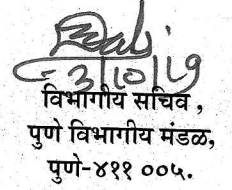 3/10/19
विभागीय सचिव,
पुणे विभागीय मंडळ,
पुणे-४११ ००५.